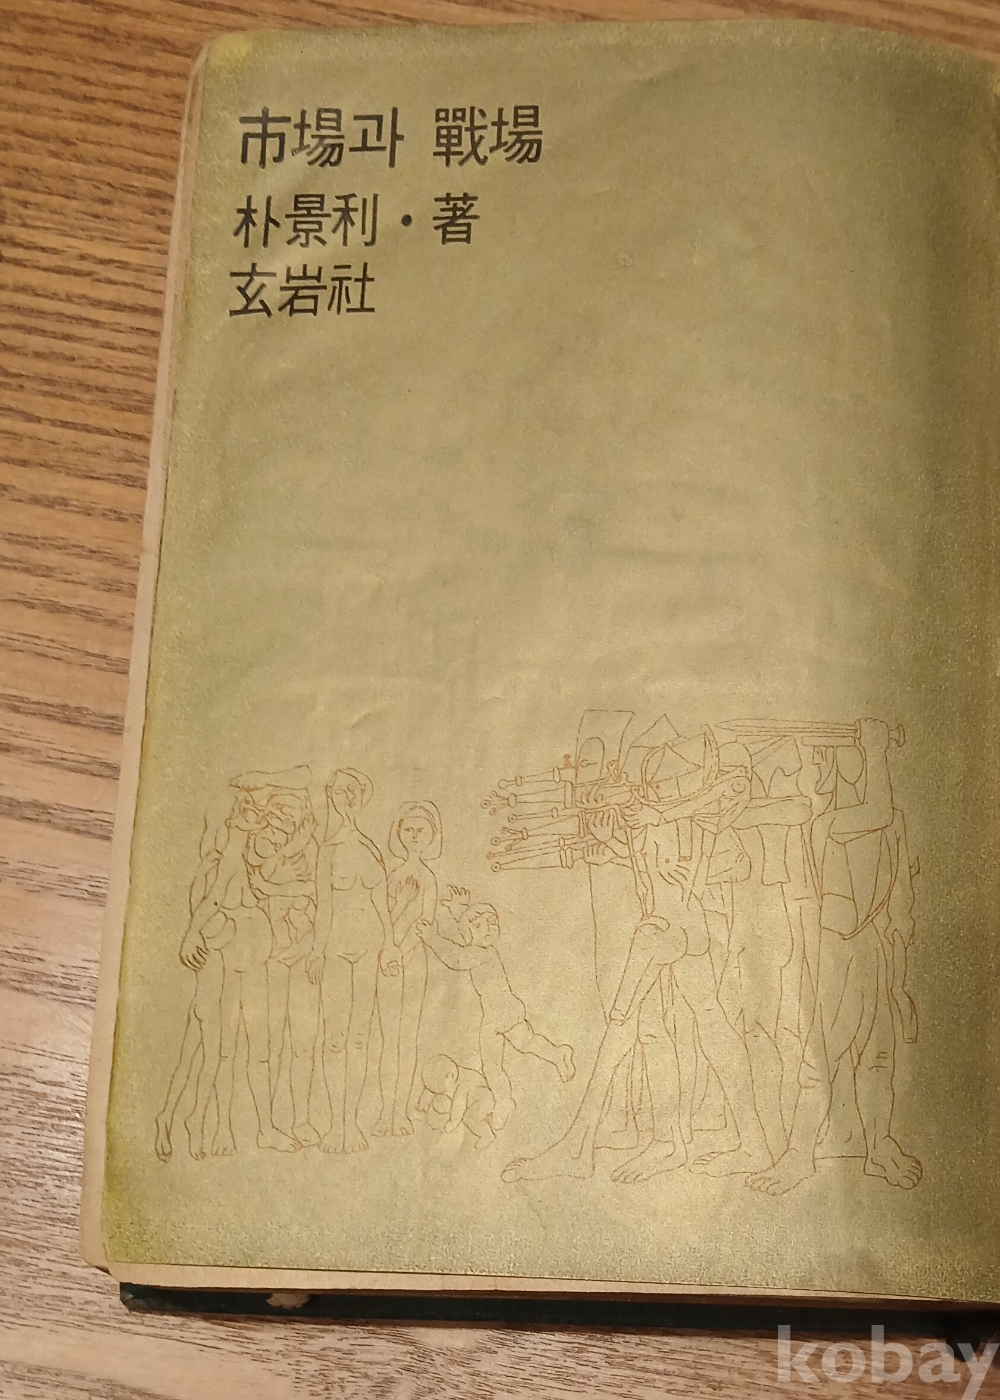 市場과 戰場
朴景利・著
玄岩社
kobay